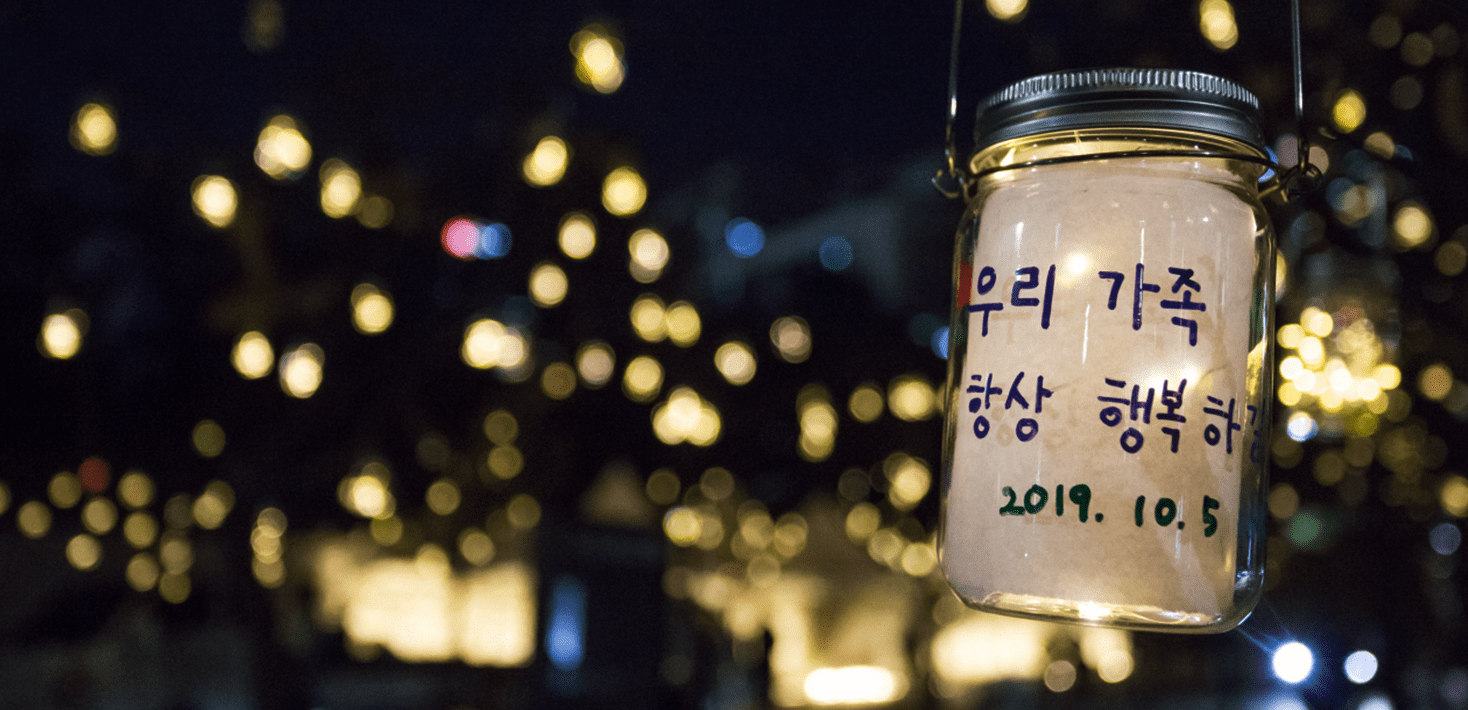 우리 가족
항상 행복하길
2019. 10. 5